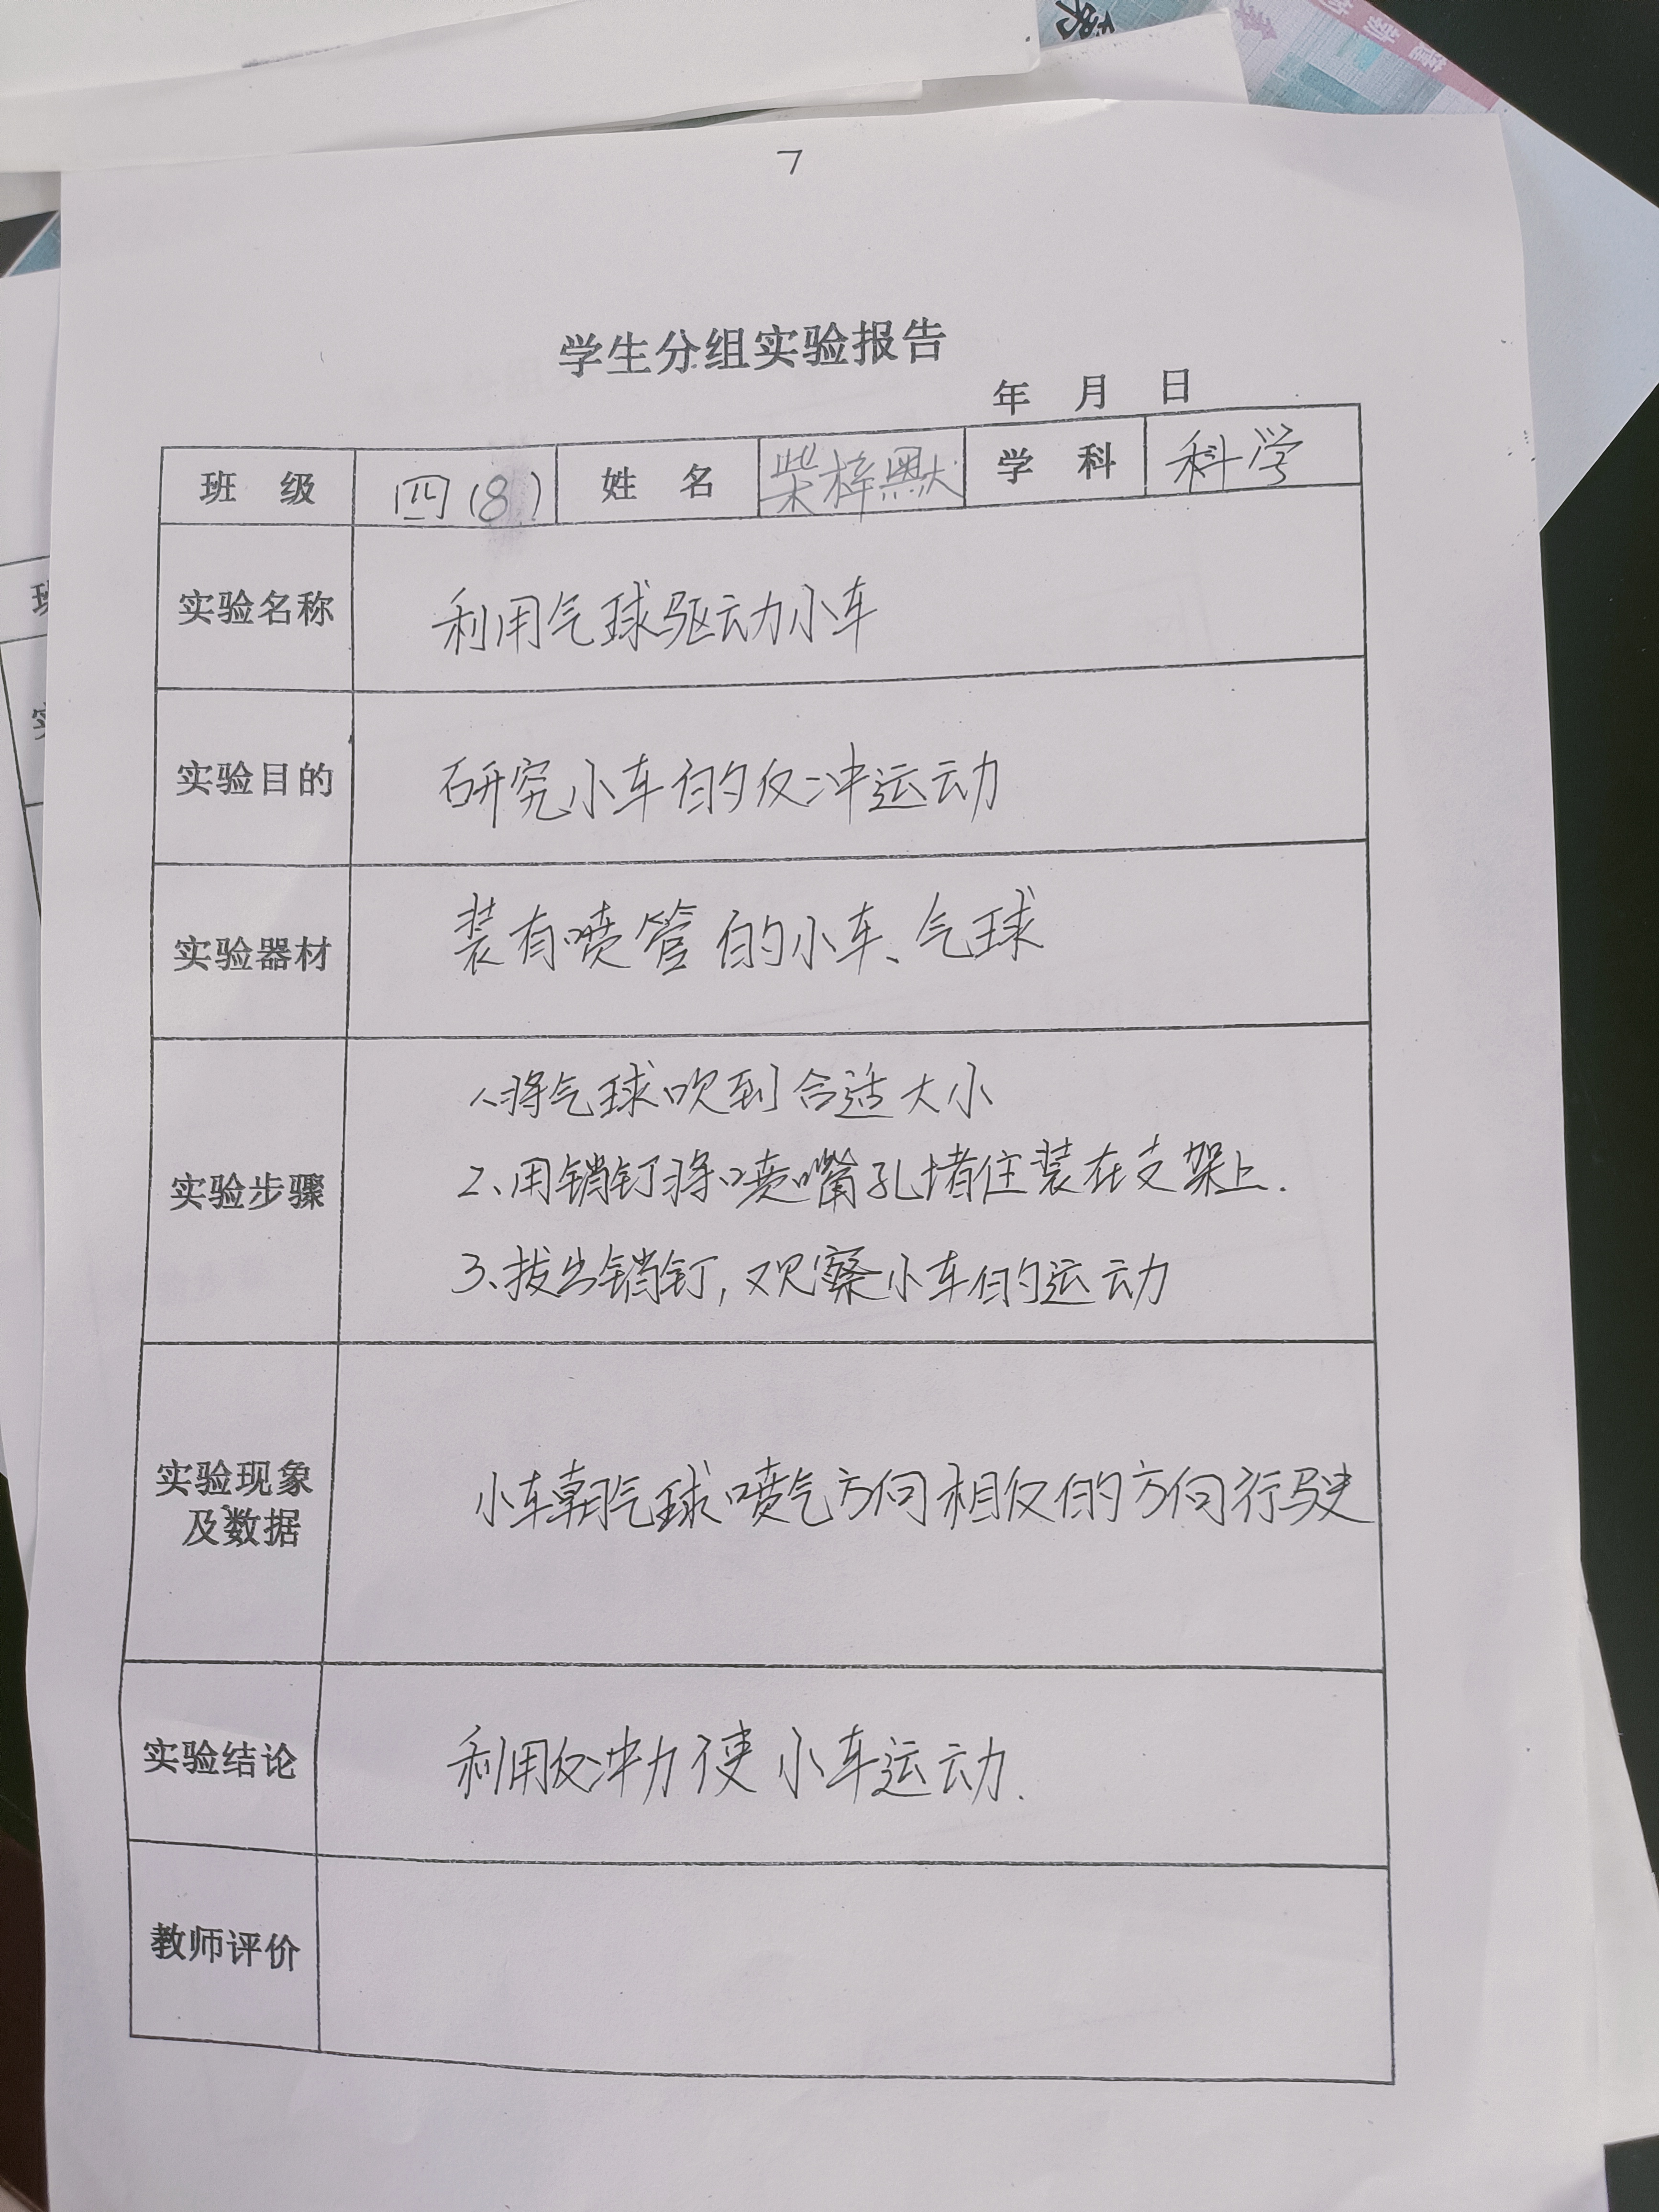 7
学生分组实验报告
年 月 日
班 级 四(8) 姓 名 柴梓默 学 科 科学
实验名称 利用气球驱动小车
实验目的 研究小车的反冲运动
实验器材 装有喷管的小车、气球
1、将气球吹到合适大小
实验步骤 2、用销钉将喷嘴孔堵住装在支架上.
3、拔出销钉,观察小车的运动
实验现象
及数据 小车朝气球喷气方向相反的方向行驶
实验结论 利用反冲力使小车运动.
教师评价